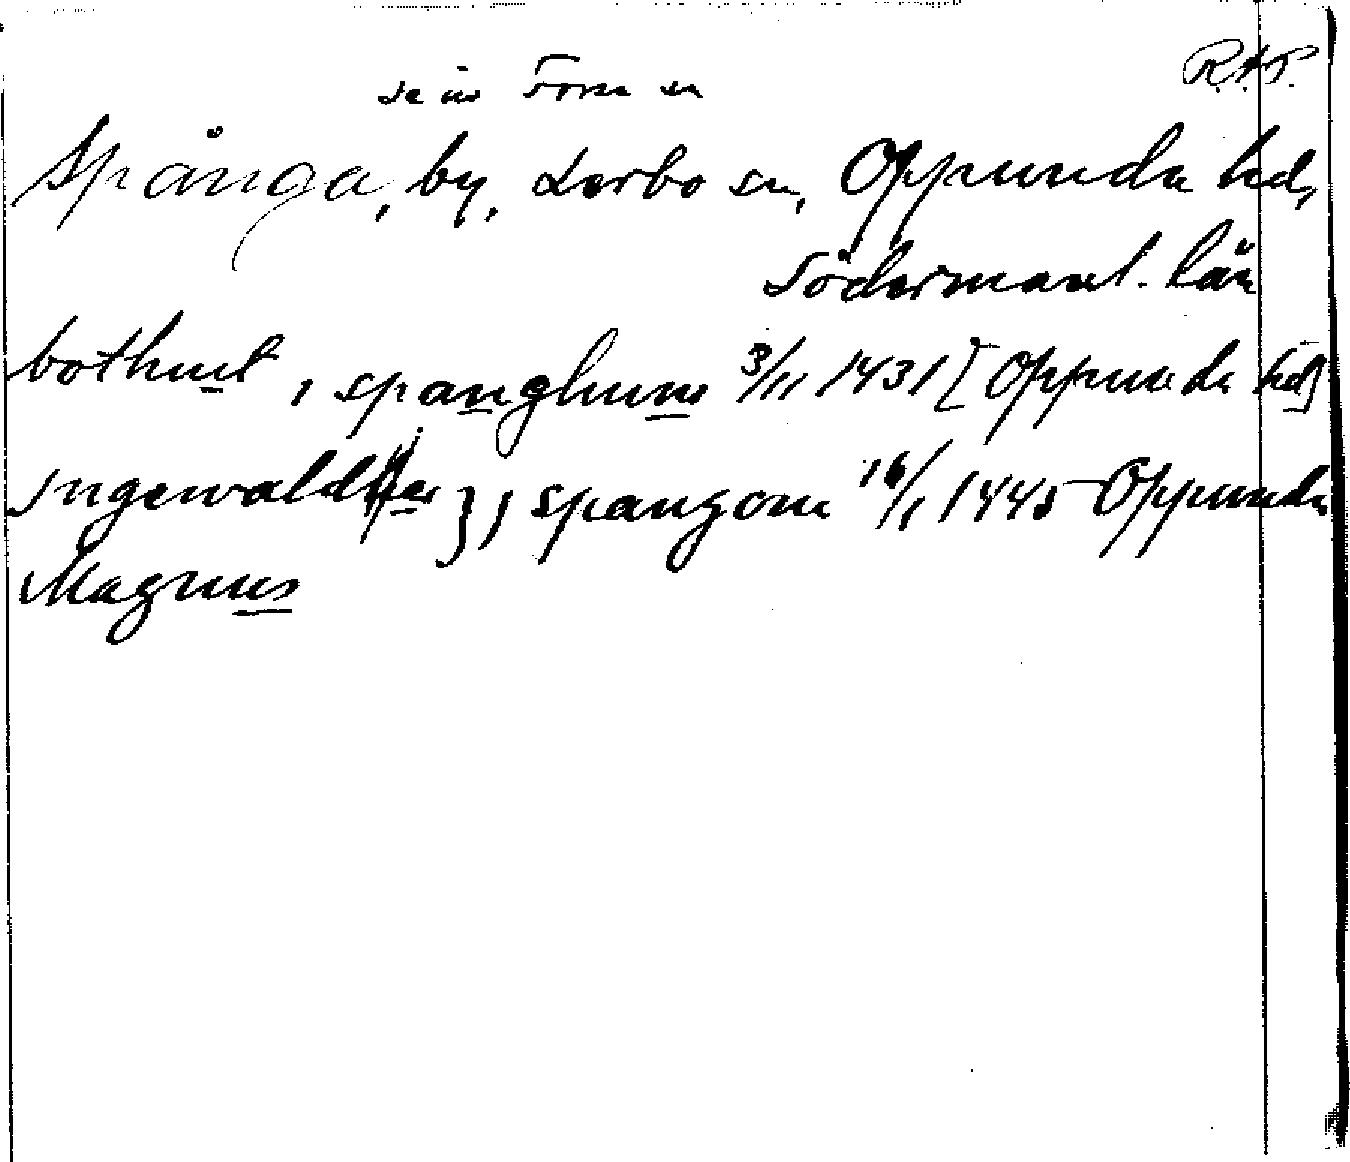 R.A.P.
se äv Forsa sn
Spånga, by, Lerbo sn, Oppunda hd,
Södermanl. län
bothuid, i spanghum 3/11 1431 [Oppunda hd]
Ingewald
Magnus }, i spangom 16/1 1445 Oppunda